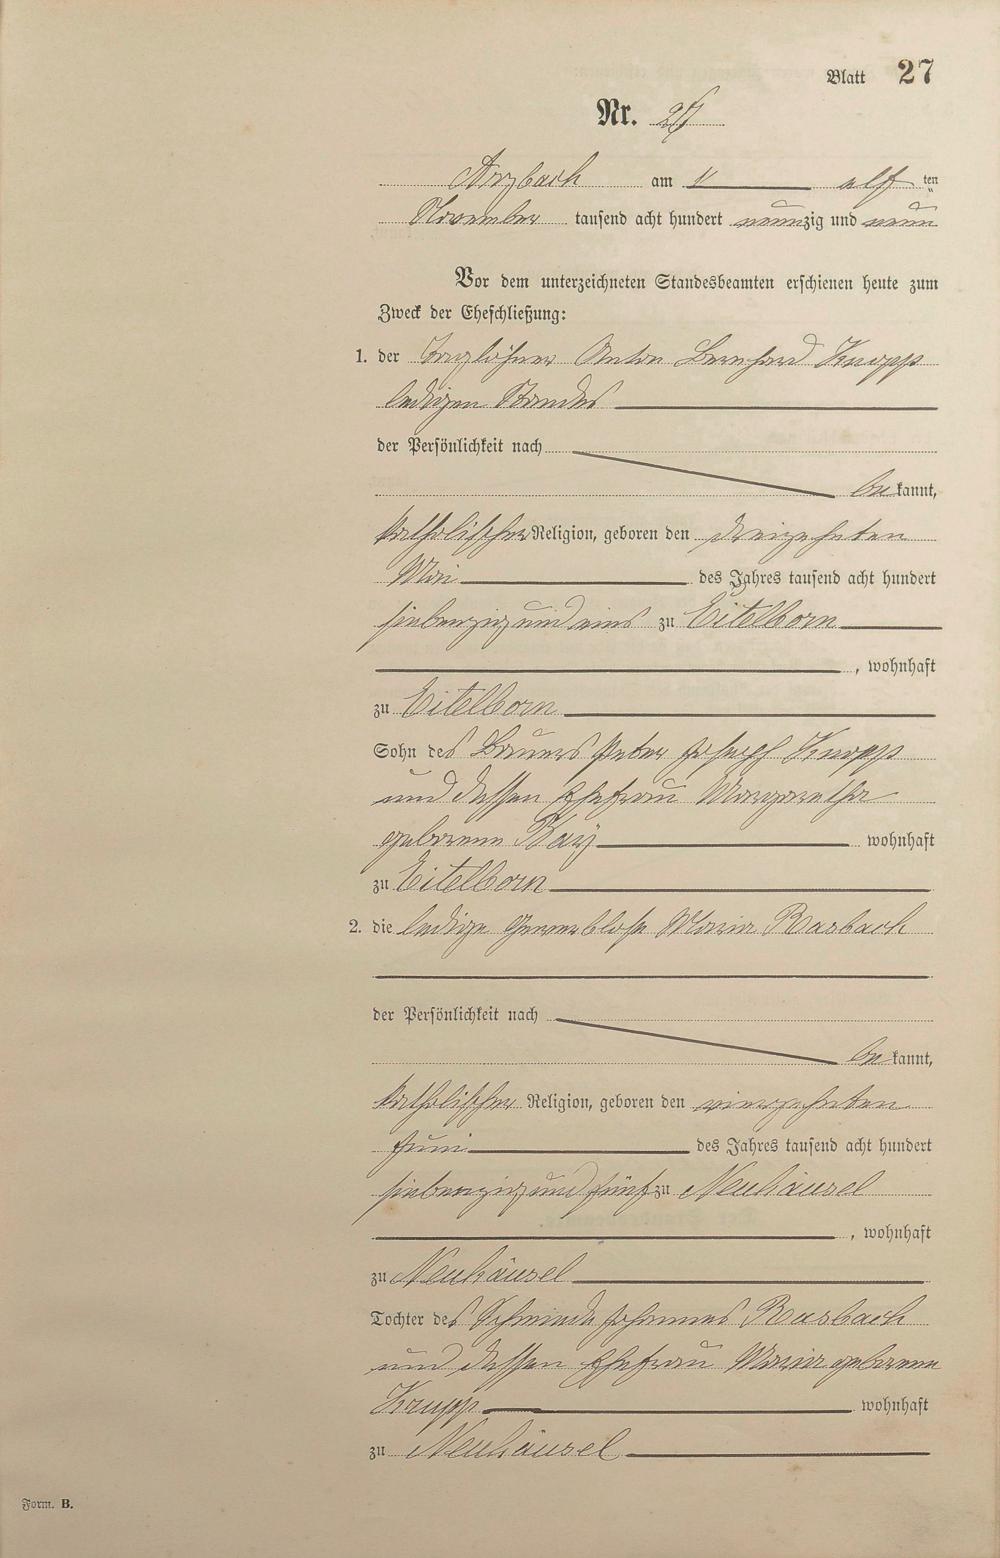 Blatt 27
Nr. 27
Arzbach am 11 elf ten
November tausend acht hundert neunzig und neun
Vor dem unterzeichneten Standesbeamten erschienen heute zum
Zweck der Eheschließung:
1. der Taglöhner Anton Bernhard Knopp
ledigen Standes
der Persönlichkeit nach
be kannt,
katholischer Religion, geboren den dreizehnten
Mai des Jahres tausend acht hundert
siebenzig und eins zu Eitelborn
, wohnhaft
zu Eitelborn
Sohn des Bauers Peter Joseph Knopp
und dessen Ehefrau Margaretha
geborene Kay wohnhaft
zu Eitelborn
2. die ledige Gewerblose Maria Rasbach
der Persönlichkeit nach
be kannt,
katholischer Religion, geboren den vierzehnten
Juni des Jahres tausend acht hundert
siebenzig und fünf zu Neuhäusel
, wohnhaft
zu Neuhäusel
Tochter des Schmieds Johannes Rasbach
und dessen Ehefrau Maria geborene
Krupp wohnhaft
zu Neuhäusel
Form. B.